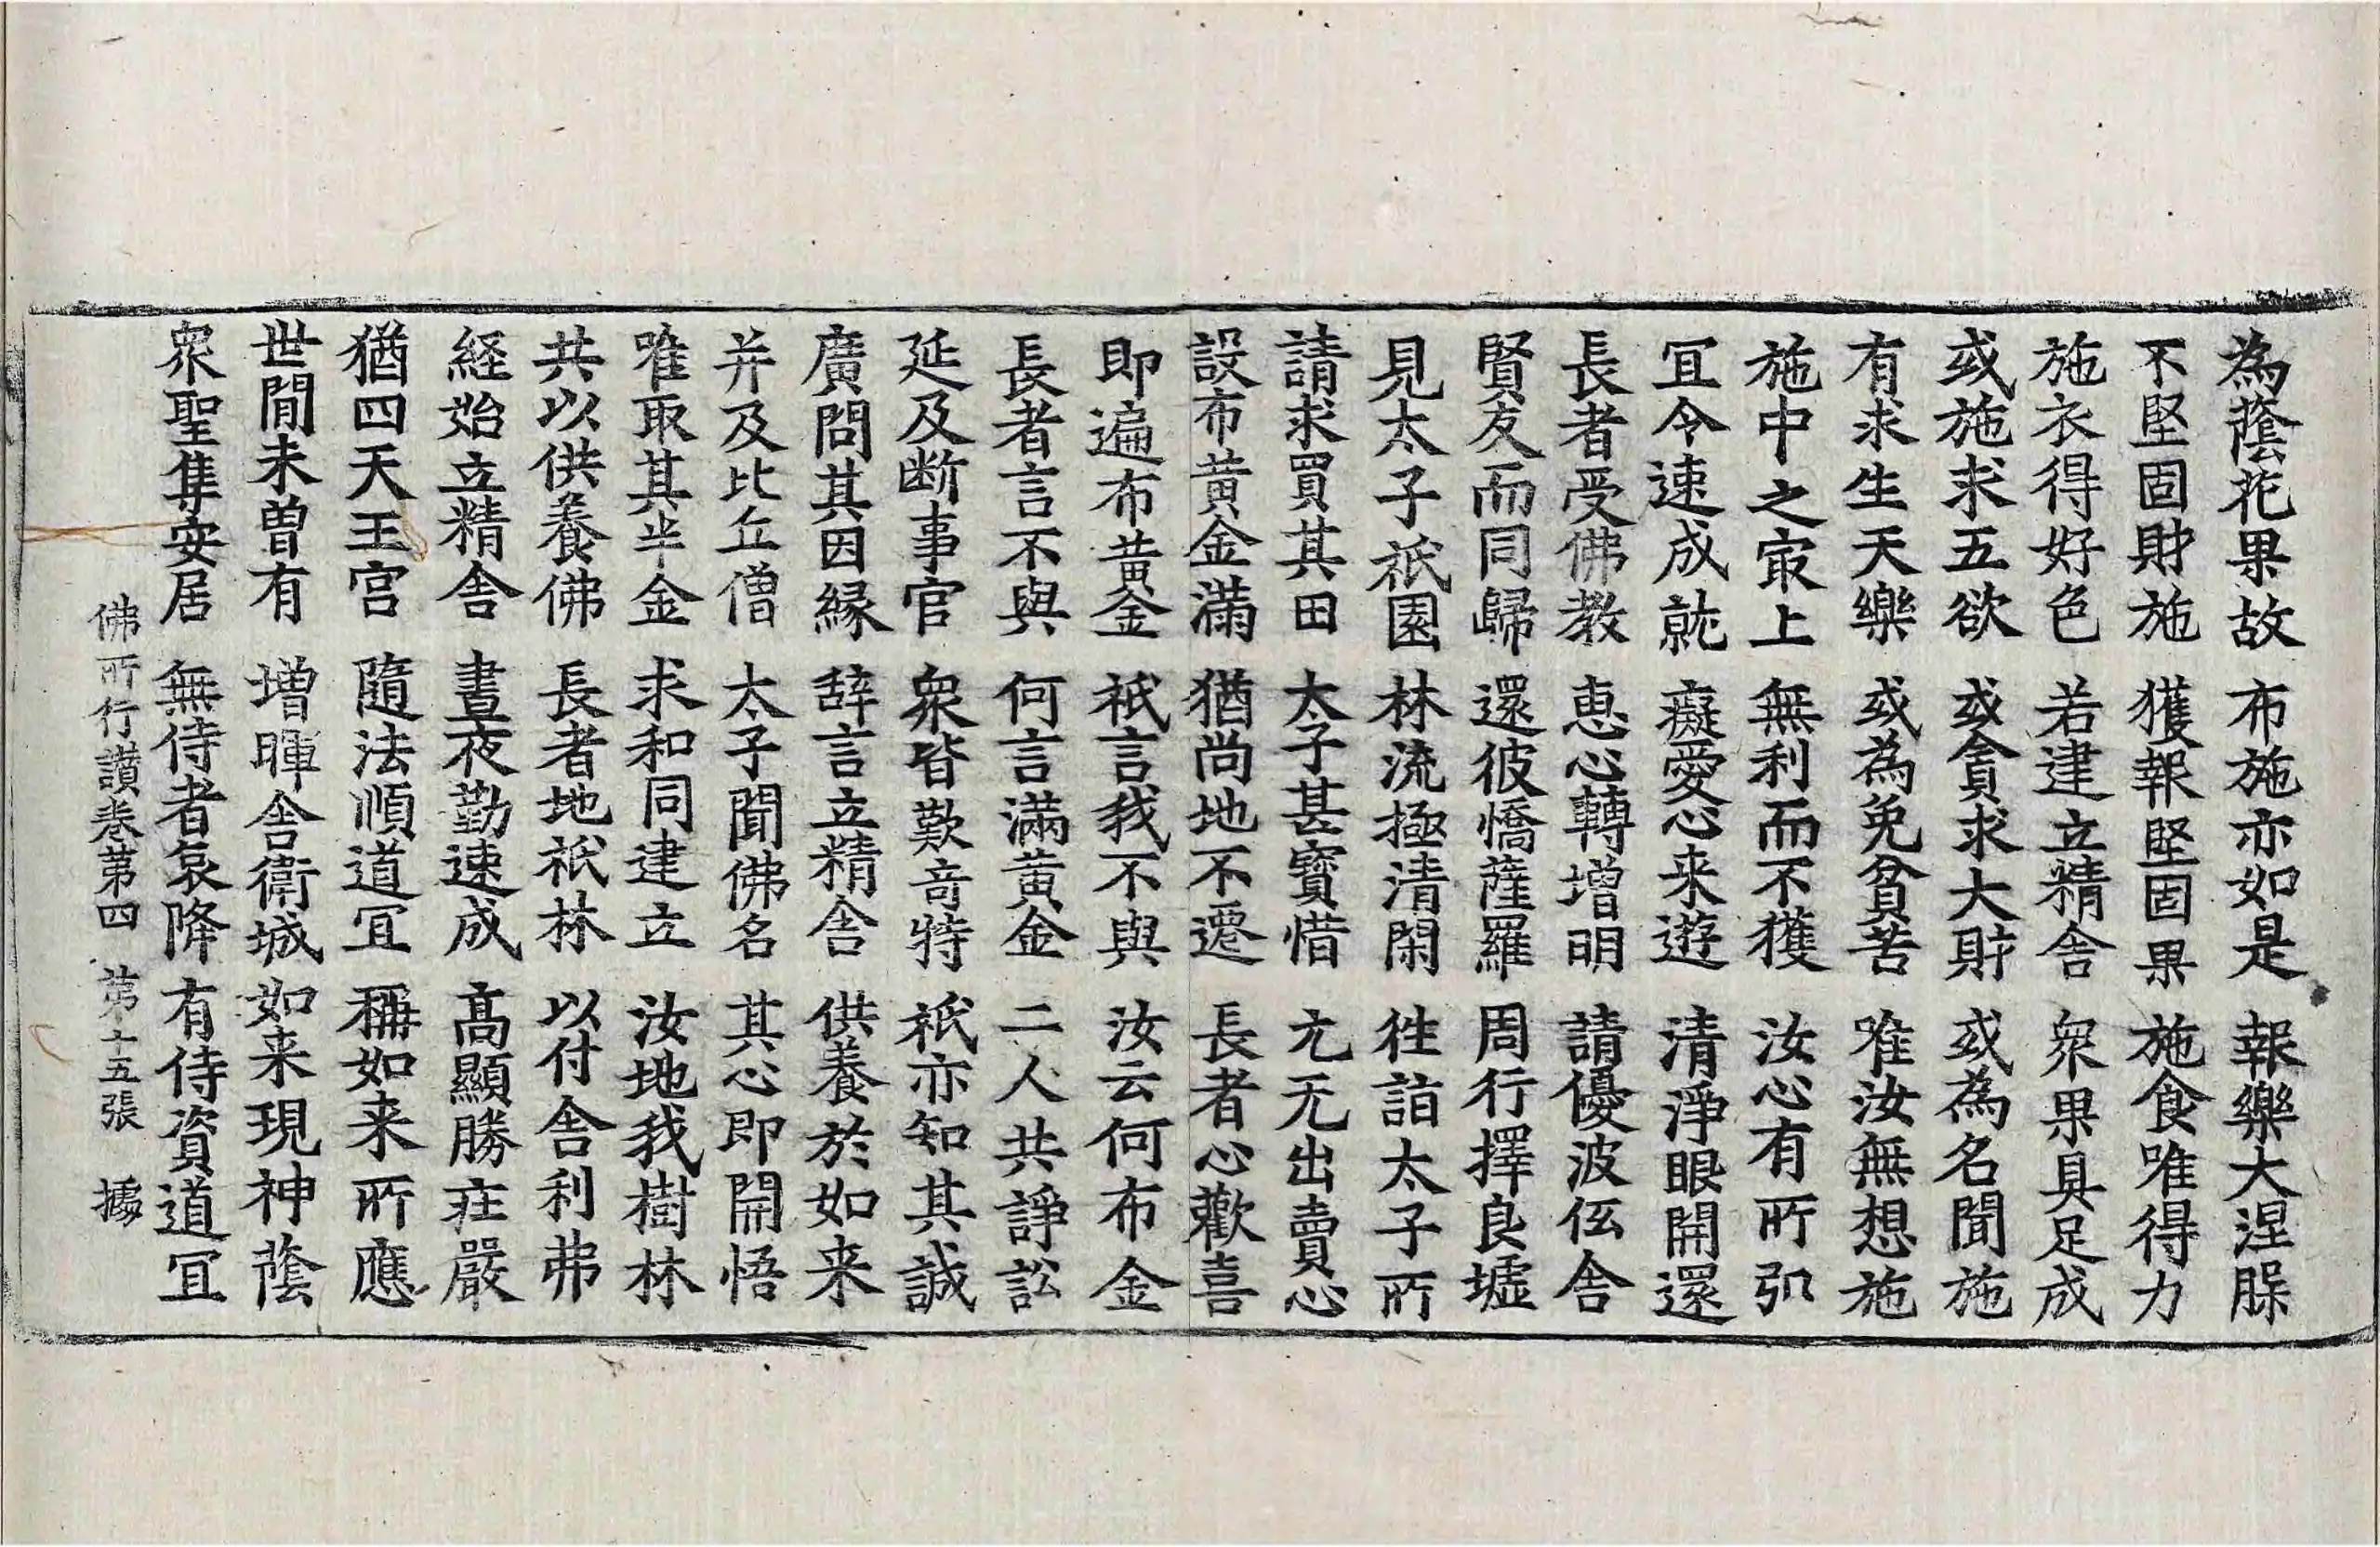 為蔭花果故 布施亦如是 報樂大涅腂
不堅固財施 獲報堅固果 施食唯得力
施衣得好色 若建立精舎 衆果具足成
或施求五欲 或貪求大財 或為名聞施
有求生天樂 或為免貧苦 唯汝無想施
施中之㝡上 無利而不獲 汝心有所弘
冝令速成就 癡愛心来遊 清淨眼開還
長者受佛教 惠心轉增明 請優波伍舎
賢友而同歸 還彼憍薩羅 周行擇良墟
見太子祇園 林流極清閑 徃詣太子所
請求買其田 太子甚寳惜 亢无出賣心
設布黄金滿 猶尚地不遷 長者心歡喜
即遍布黄金 祇言我不與 汝云何布金
長者言不與 何言滿黄金 二人共諍訟
延及断事官 衆皆歎竒特 祇亦知其誠
廣問其因縁 辞言立精舎 供養於如来
并及比丘僧 太子聞佛名 其心即開悟
唯取其半金 求和同建立 汝地我樹林
共以供養佛 長者地祇林 以付舎利弗
経始立精舎 晝夜勤速成 髙顯勝荘嚴
猶四天王宫 隨法順道冝 稱如来所應
世間未曽有 增暉舎衛城 如来現神蔭
衆聖集安居 無侍者哀降 有侍資道冝
佛所行讃卷第四 第十五張 據